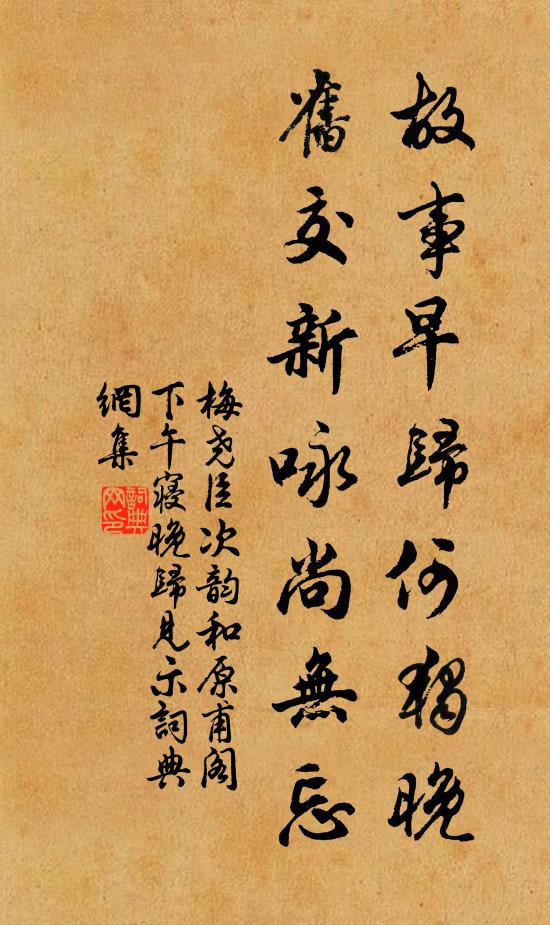 故事早歸何獨晚
舊交新咏尚無忘
梅堯臣次韵和原甫閣
下午寢晚歸見示詞典
網集
詞典
网印